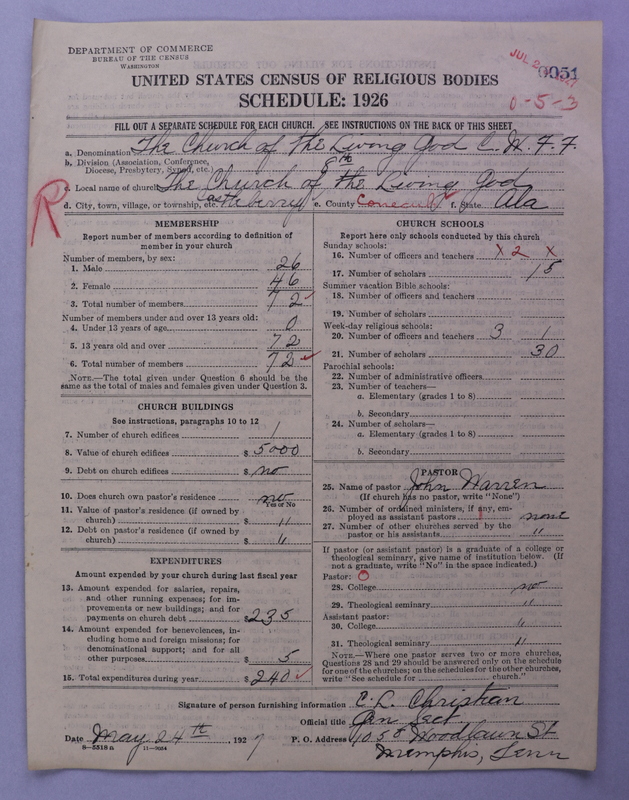 DEPARTMENT OF COMMERCE
BUREAU OF THE CENSUS
WASHINGTON
JUL 2 1927
0051
0-5-3
UNITED STATES CENSUS OF RELIGIOUS BODIES
SCHEDULE: 1926
FILL OUT A SEPARATE SCHEDULE FOR EACH CHURCH. SEE INSTRUCTIONS ON THE BACK OF THIS SHEET
a. Denomination The Church of the Living God C. W. F. F.
b. Division (Association, Conference, Diocese, Presbytery, Synod, etc.) 8th
c. Local name of church The Church of the Living God
R
d. City, town, village, or township, etc. Castleberry e. County Conecuh f. State Ala
MEMBERSHIP
Report number of members according to definition of member in your church
Number of members, by sex:
1. Male 26
2. Female 46
3. Total number of members 72 ✓
Number of members under and over 13 years old:
4. Under 13 years of age 0
5. 13 years old and over 72
6. Total number of members 72 ✓
NOTE.—The total given under Question 6 should be the same as the total of males and females given under Question 3.
CHURCH BUILDINGS
See instructions, paragraphs 10 to 12
7. Number of church edifices 1
8. Value of church edifices $ 5000
9. Debt on church edifices $ no
10. Does church own pastor's residence no
Yes or No
11. Value of pastor's residence (if owned by church) $ "
12. Debt on pastor's residence (if owned by church) $ "
EXPENDITURES
Amount expended by your church during last fiscal year
13. Amount expended for salaries, repairs, and other running expenses; for improvements or new buildings; and for payments on church debt $ 235
14. Amount expended for benevolences, including home and foreign missions; for denominational support; and for all other purposes $ 5
15. Total expenditures during year $ 240 ✓
CHURCH SCHOOLS
Report here only schools conducted by this church
Sunday schools:
16. Number of officers and teachers X 2 X
17. Number of scholars 15
Summer vacation Bible schools:
18. Number of officers and teachers
19. Number of scholars
Week-day religious schools:
20. Number of officers and teachers 3 1
21. Number of scholars 30
Parochial schools:
22. Number of administrative officers
23. Number of teachers—
a. Elementary (grades 1 to 8)
b. Secondary
24. Number of scholars—
a. Elementary (grades 1 to 8)
b. Secondary
PASTOR
25. Name of pastor John Warren
(If church has no pastor, write "None")
26. Number of ordained ministers, if any, employed as assistant pastors none
27. Number of other churches served by the pastor or his assistants "
If pastor (or assistant pastor) is a graduate of a college or theological seminary, give name of institution below. (If not a graduate, write "No" in the space indicated.)
Pastor: O
28. College no
29. Theological seminary "
Assistant pastor:
30. College "
31. Theological seminary "
NOTE.—Where one pastor serves two or more churches, Questions 28 and 29 should be answered only on the schedule for one of the churches; on the schedules for the other churches, write "See schedule for church."
Signature of person furnishing information E. L. Christian
Official title Gen Sect
Date May 24th, 1927 P. O. Address 1058 Woodlawn St
8-5518a 11-9054 Memphis, Tenn